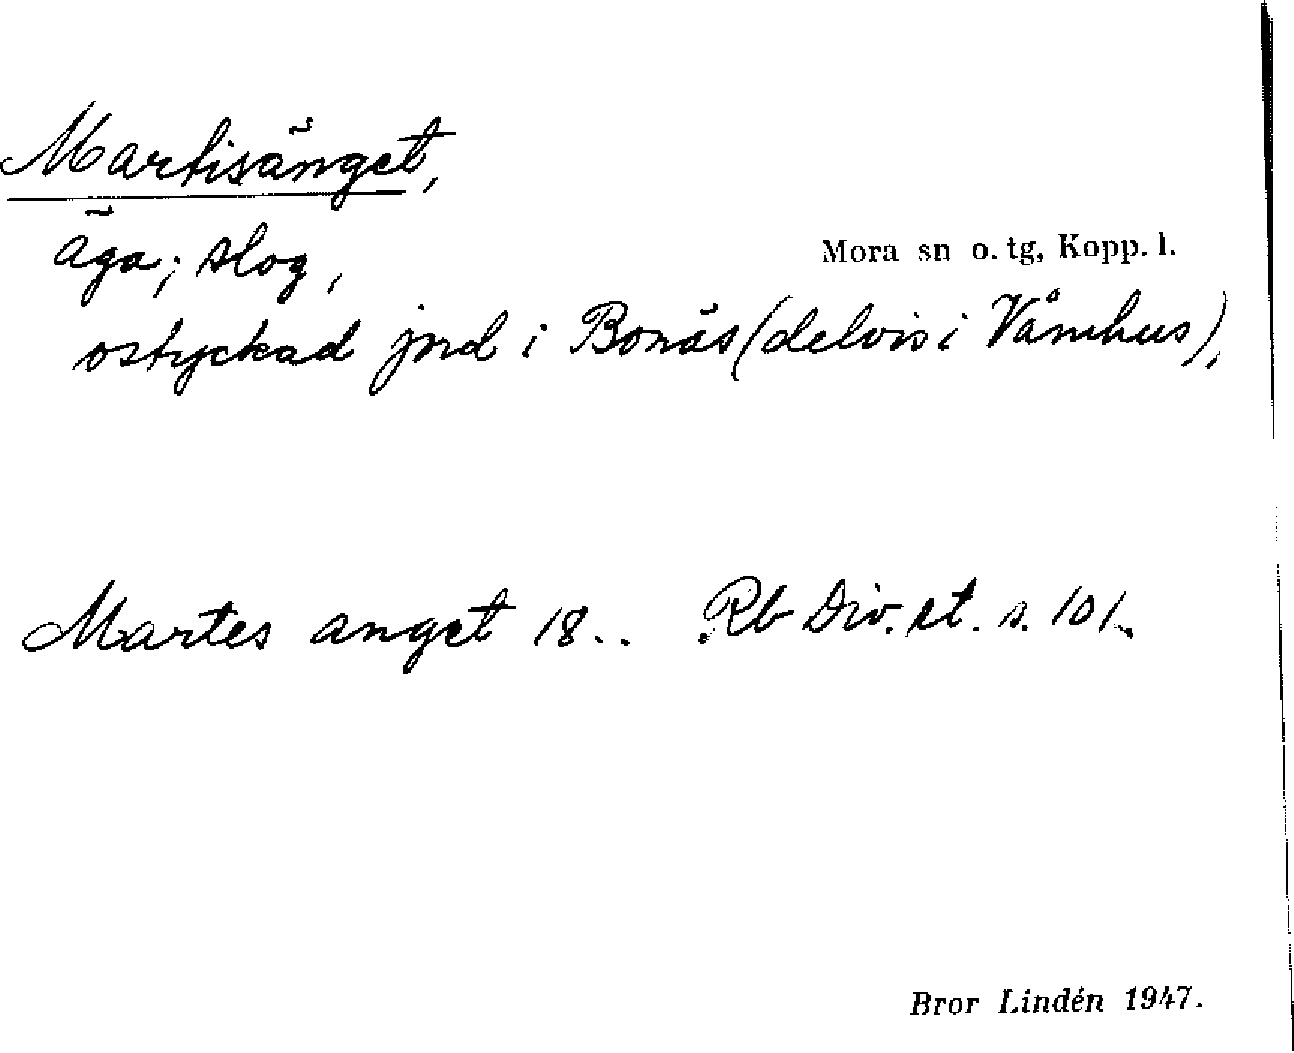 Martisänget,
äga; slog,
Mora sn o. tg, Kopp. l.
ostyckad jord i Bonäs (delvis i Våmhus),
Martes anget 18.. Rb Div. st. s. 101.
Bror Lindén 1947.